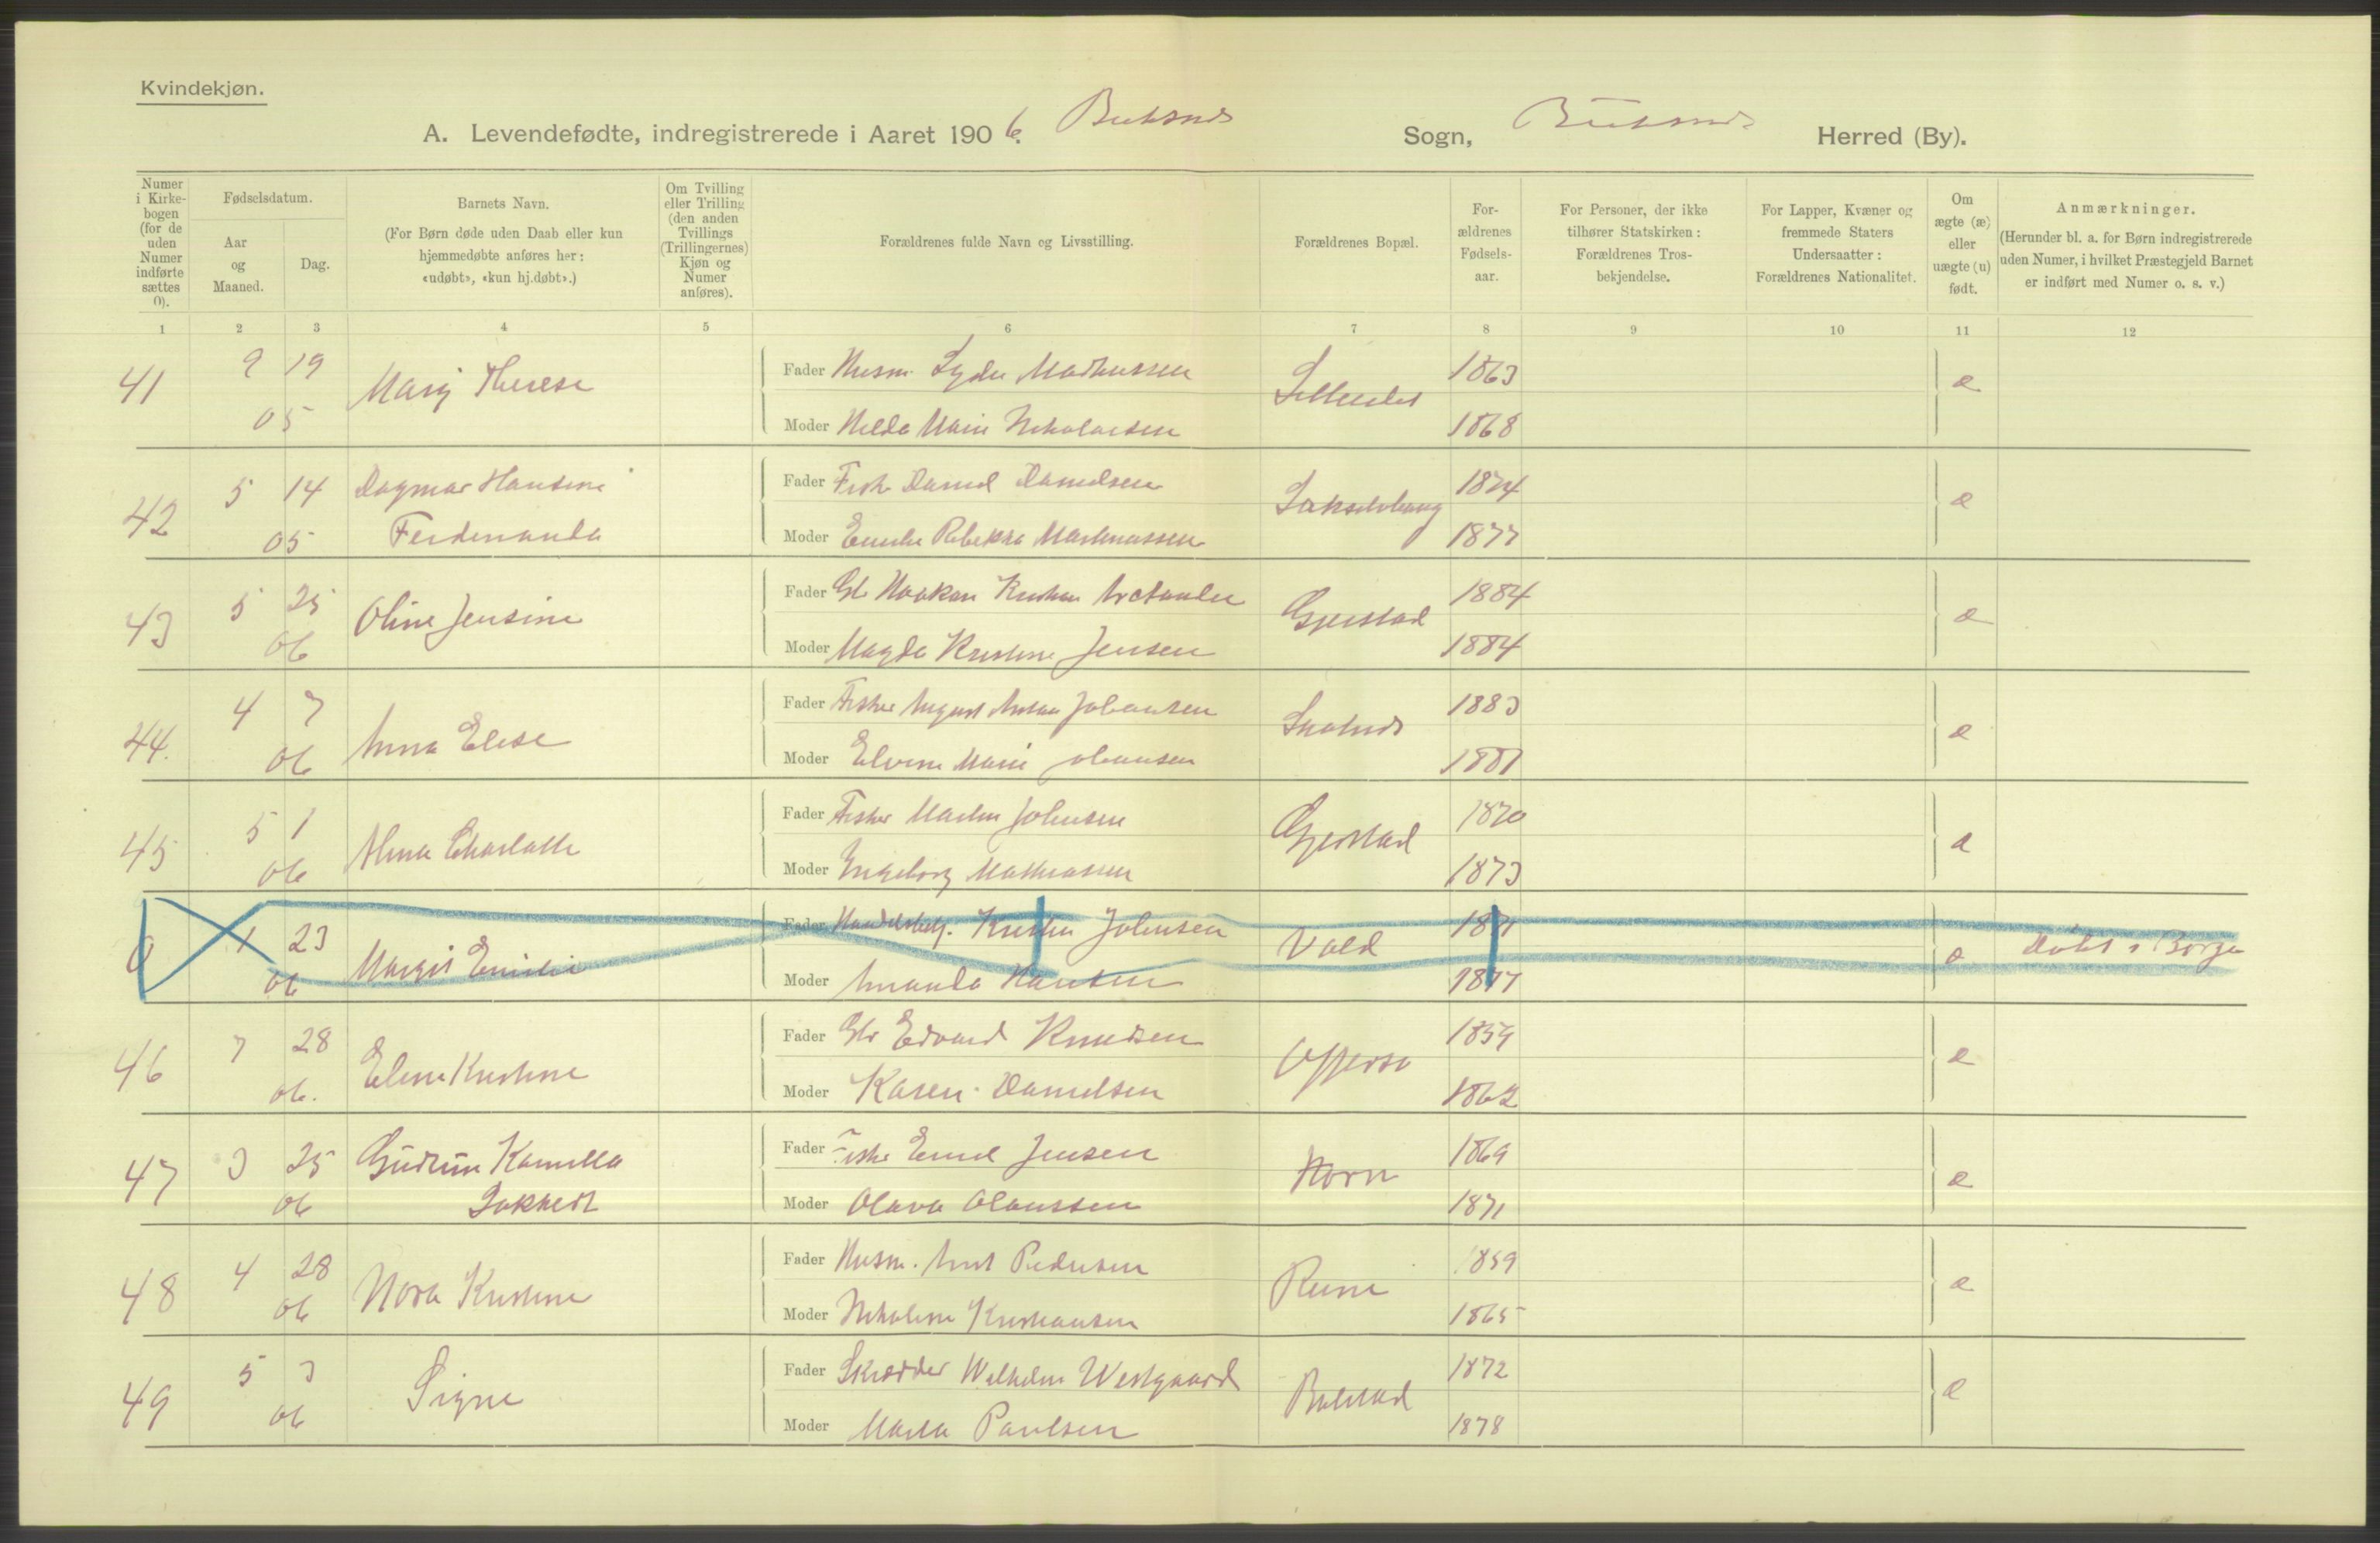 Kvindekjøn.
A. Levendefødte, indregistrerede i Aaret 1906. Buksnes Sogn, Buksnes Herred (By).
Numer i Kirkebogen (for de uden Numer indførte sættes 0).
Fødselsdatum.
Aar og Maaned.
Dag.
Barnets Navn.
(For Børn døde uden Daab eller kun hjemmedøbte anføres her: «udøbt», «kun hj.døbt».)
Om Tvilling eller Trilling (den anden Tvillings (Trillingernes) Kjøn og Numer anføres).
Forældrenes fulde Navn og Livsstilling.
Forældrenes Bopæl.
Forældrenes Fødselsaar.
For Personer, der ikke tilhører Statskirken: Forældrenes Trosbekjendelse.
For Lapper, Kvæner og fremmede Staters Undersaatter: Forældrenes Nationalitet.
Om ægte (æ) eller uægte (u) født.
Anmærkninger.
(Herunder bl. a. for Børn indregistrerede uden Numer, i hvilket Præstegjeld Barnet er indført med Numer o. s. v.)
1 2 3 4 5 6 7 8 9 10 11 12
41 9 19 Marij Therese Fader Husm. Lyder Mathissen 1863 æ
05 Moder Hilda Marie Nikolaisen 1868
42 5 14 Dagmar Hansine Fader Fisk. Daniel Danielsen 1874 æ
05 Ferdinanda Moder Emilie Rebekka Markussen 1877
43 5 25 Oline Jensine Fader Haakon Kristian Gjerstad 1884 æ
06 Moder Magda Kristine Jensen 1884
44. 4 7 Anna Elise Fader Fisker August Anton Johansen 1883 æ
06 Moder Elvine Marie Johansen 1881
45 5 1 Alma Charlotte Fader Fisker Martin Johnsen Gjerstad 1870 æ
06 Moder Ingeborg Mathiassen 1873
0 1 23 Margit Emilie Fader Kristian Johnsen Vold æ Døbt i Borge
06 Moder Amanda Hansen 1877
46 7 28 Eline Kristine Fader Edvard Knudsen Offersø 1859 æ
06. Moder Karen Danielsen 1862
47 3 25 Gudrun Kamilla Fader Fisker Emil Jensen Horn 1869 æ
06 Moder Olava Olaussen 1871
48 4 28 Nora Kristine Fader Husm. Arnt Pedersen Reine 1859 æ
06 Moder Nikoline Kristiansen 1865
49 5 3 Signe Fader Skrædder Wilhelm Westgaard Bolstad 1872 æ
06 Moder Marta Paulsen 1878